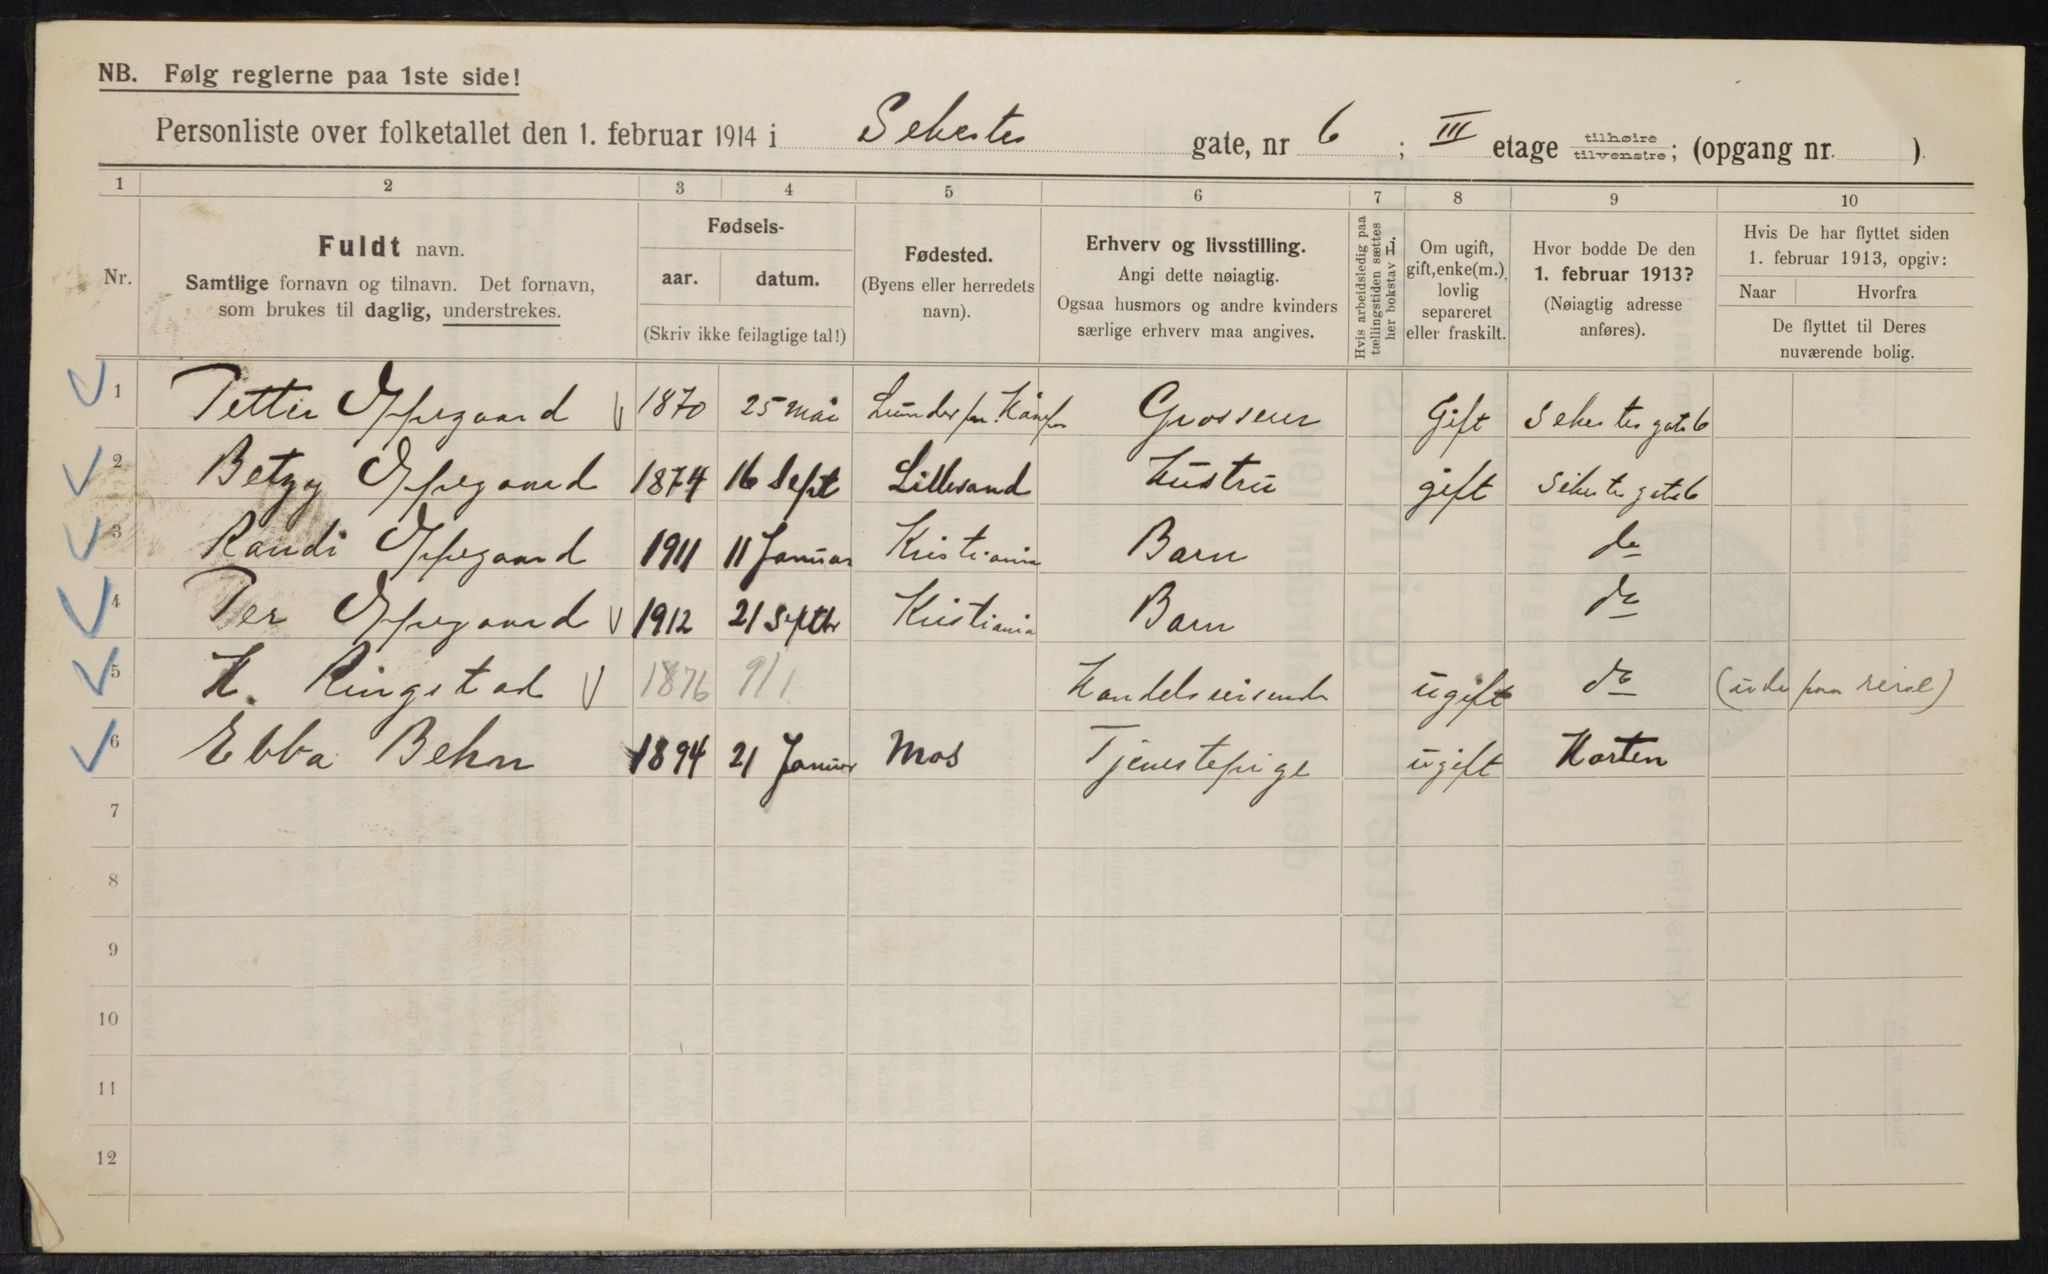 NB. Følg reglerne paa 1ste side!
Personliste over folketallet den 1. februar 1914 i Sehestes gate, nr 6 ; III etage tilhøire/tilvenstre; (opgang nr. ).
1 2 3 4 5 6 7 8 9 10
Nr.
Fuldt navn.
Samtlige fornavn og tilnavn. Det fornavn,
som brukes til daglig, understrekes.
Fødsels-
aar. datum.
(Skriv ikke feilagtige tal!)
Fødested.
(Byens eller herredets
navn).
Erhverv og livsstilling.
Angi dette nøiagtig.
Ogsaa husmors og andre kvinders
særlige erhverv maa angives.
Hvis arbeidsledig paa
tællingstiden sættes
her bokstav L.
Om ugift,
gift, enke(m.),
lovlig
separeret
eller fraskilt.
Hvor bodde De den
1. februar 1913?
(Nøiagtig adresse
anføres).
Hvis De har flyttet siden
1. februar 1913, opgiv:
Naar Hvorfra
De flyttet til Deres
nuværende bolig.
1 Petter Oppegaard 1870 25 Mai Grosserer Gift Sehestes gate 6
2 Betzy Oppegaard 1874 16 Sept Lillesand Hustru gift Sehestes gate 6
3 Randi Oppegaard 1911 11 Januar Kristiania Barn do
4 Per Oppegaard 1912 21 Septbr Kristiania Barn do
5 H. Ringstad 1876 9/1 Handelsreisende ugift do (ude paa reise)
6 Ebba Behn 1894 21 Januar Mos Tjenestepige ugift Horten
7
8
9
10
11
12